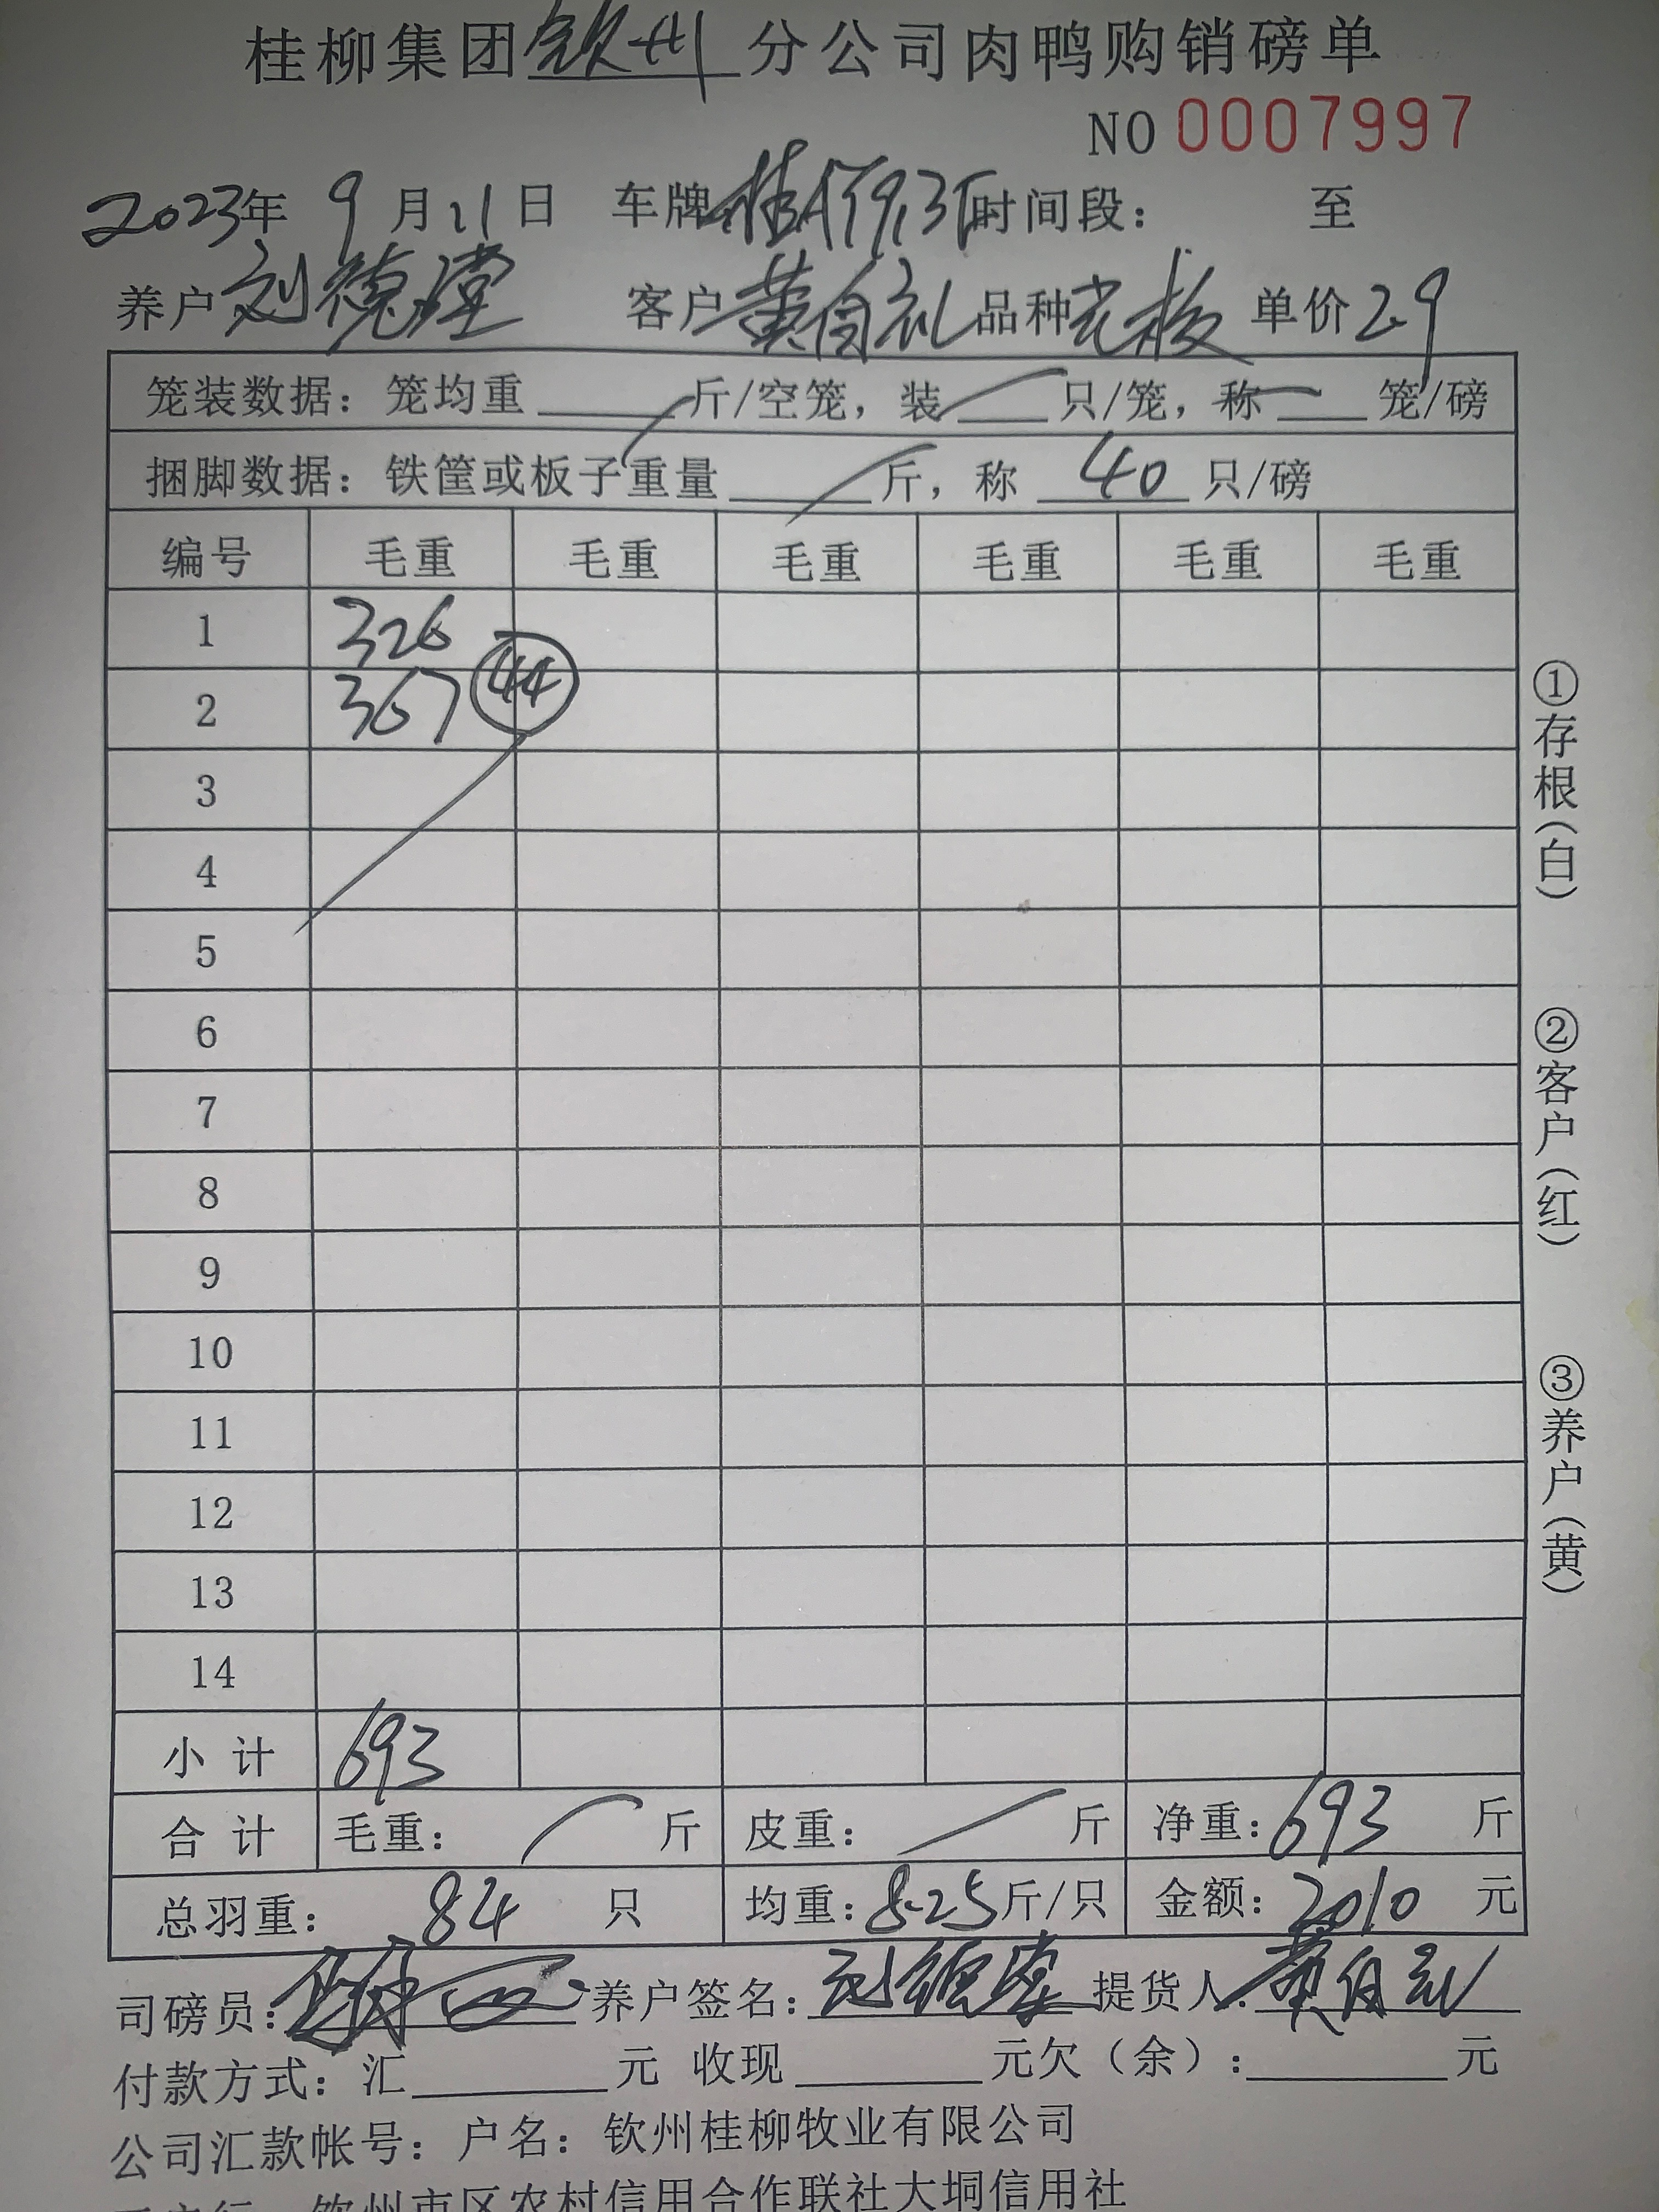 桂柳集团钦州分公司肉鸭购销磅单
NO 0007997
2023年 9月11日 车牌 时间段： 至
养户 刘德 客户 黄自礼 品种 老板 单价 2.9
笼装数据：笼均重 斤/空笼，装 只/笼，称 笼/磅
捆脚数据：铁筐或板子重量 斤，称 40 只/磅
编号 毛重 毛重 毛重 毛重 毛重 毛重
1 326
2 367 44
3
4
5
6
7
8
9
10
11
12
13
14
小 计 693
合 计 毛重： 斤 皮重： 斤 净重：693 斤
总羽重： 84 只 均重：8.25斤/只 金额：2010 元
司磅员： 养户签名：刘德 提货人：黄自礼
付款方式：汇 元 收现 元欠（余）： 元
公司汇款帐号：户名：钦州桂柳牧业有限公司
钦州市区农村信用合作联社大垌信用社
①存根（白）
②客户（红）
③养户（黄）